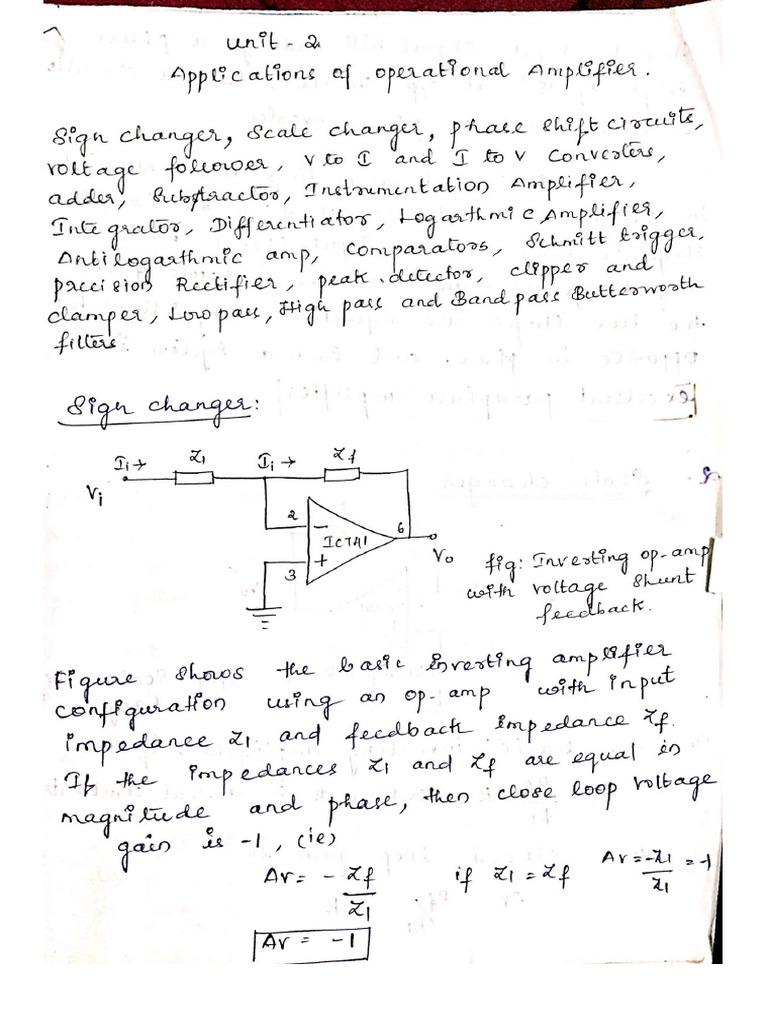 Unit - 2
Applications of operational Amplifier.
Sign changer, Scale changer, phase shift circuits,
voltage follower, V to I and I to V converters,
adder, Substractor, Instrumentation Amplifier,
Integrator, Differentiator, Logarthmic Amplifier,
Antilogarthmic amp, comparators, Schmitt trigger,
precision Rectifier, peak detector, clipper and
clamper, Low pass, High pass and Band pass Butterworth
filters.
Sign changer:
Ii → Z1 Ii → Zf
Vi
2 −
IC741 6
3 + Vo
fig: Inverting op-amp
with voltage shunt
feedback.
Figure shows the basic inverting amplifier
configuration using an op-amp with input
impedance Z1 and feedback impedance Zf.
If the impedances Z1 and Zf are equal in
magnitude and phase, then close loop voltage
gain is -1, (ie)
Av = - Zf/Z1 if Z1 = Zf Av = -Z1/Z1 = -1
Av = -1